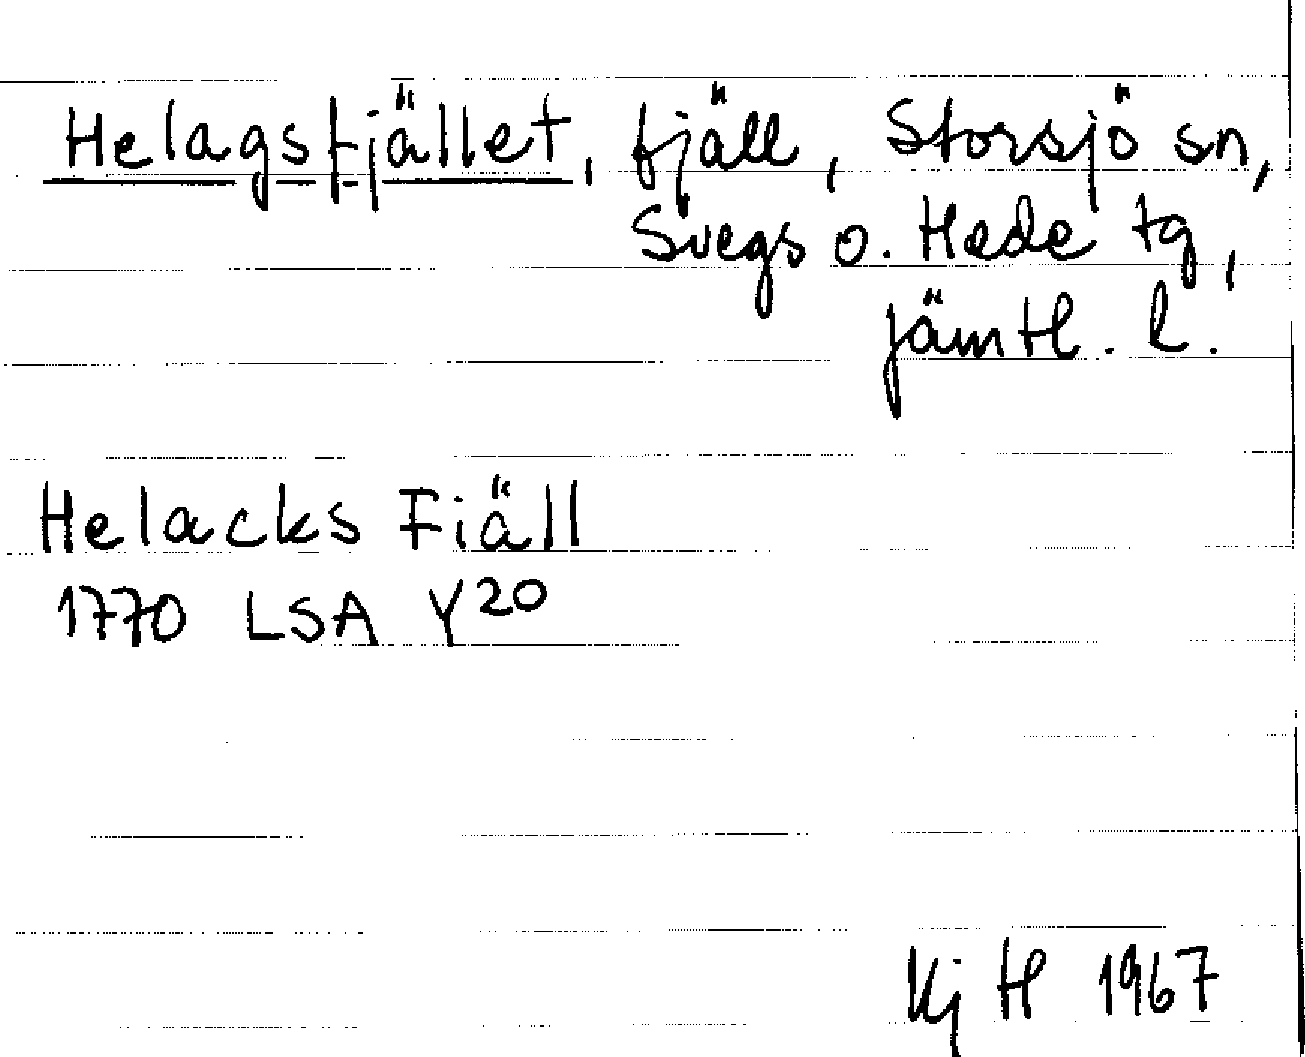 Helagsfjället, fjäll, Storsjö sn,
Svegs o. Hede tg,
Jämtl. l.
Helacks Fiäll
1770 LSA Y20
Kj H 1967